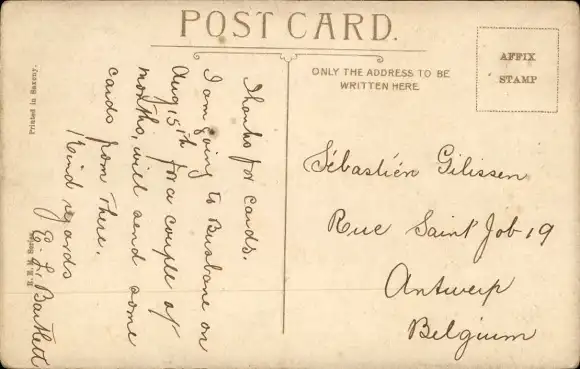 POST CARD.
ONLY THE ADDRESS TO BE
WRITTEN HERE
AFFIX
STAMP
Printed in Saxony.
Thanks for cards.
I am going to Brisbane on
Aug 15th for a couple of
months, will send some
cards from there.
Kind regards
E. L. Bartlett
Sébastién Gilissen
Rue Saint Job 19
Antwerp
Belgium